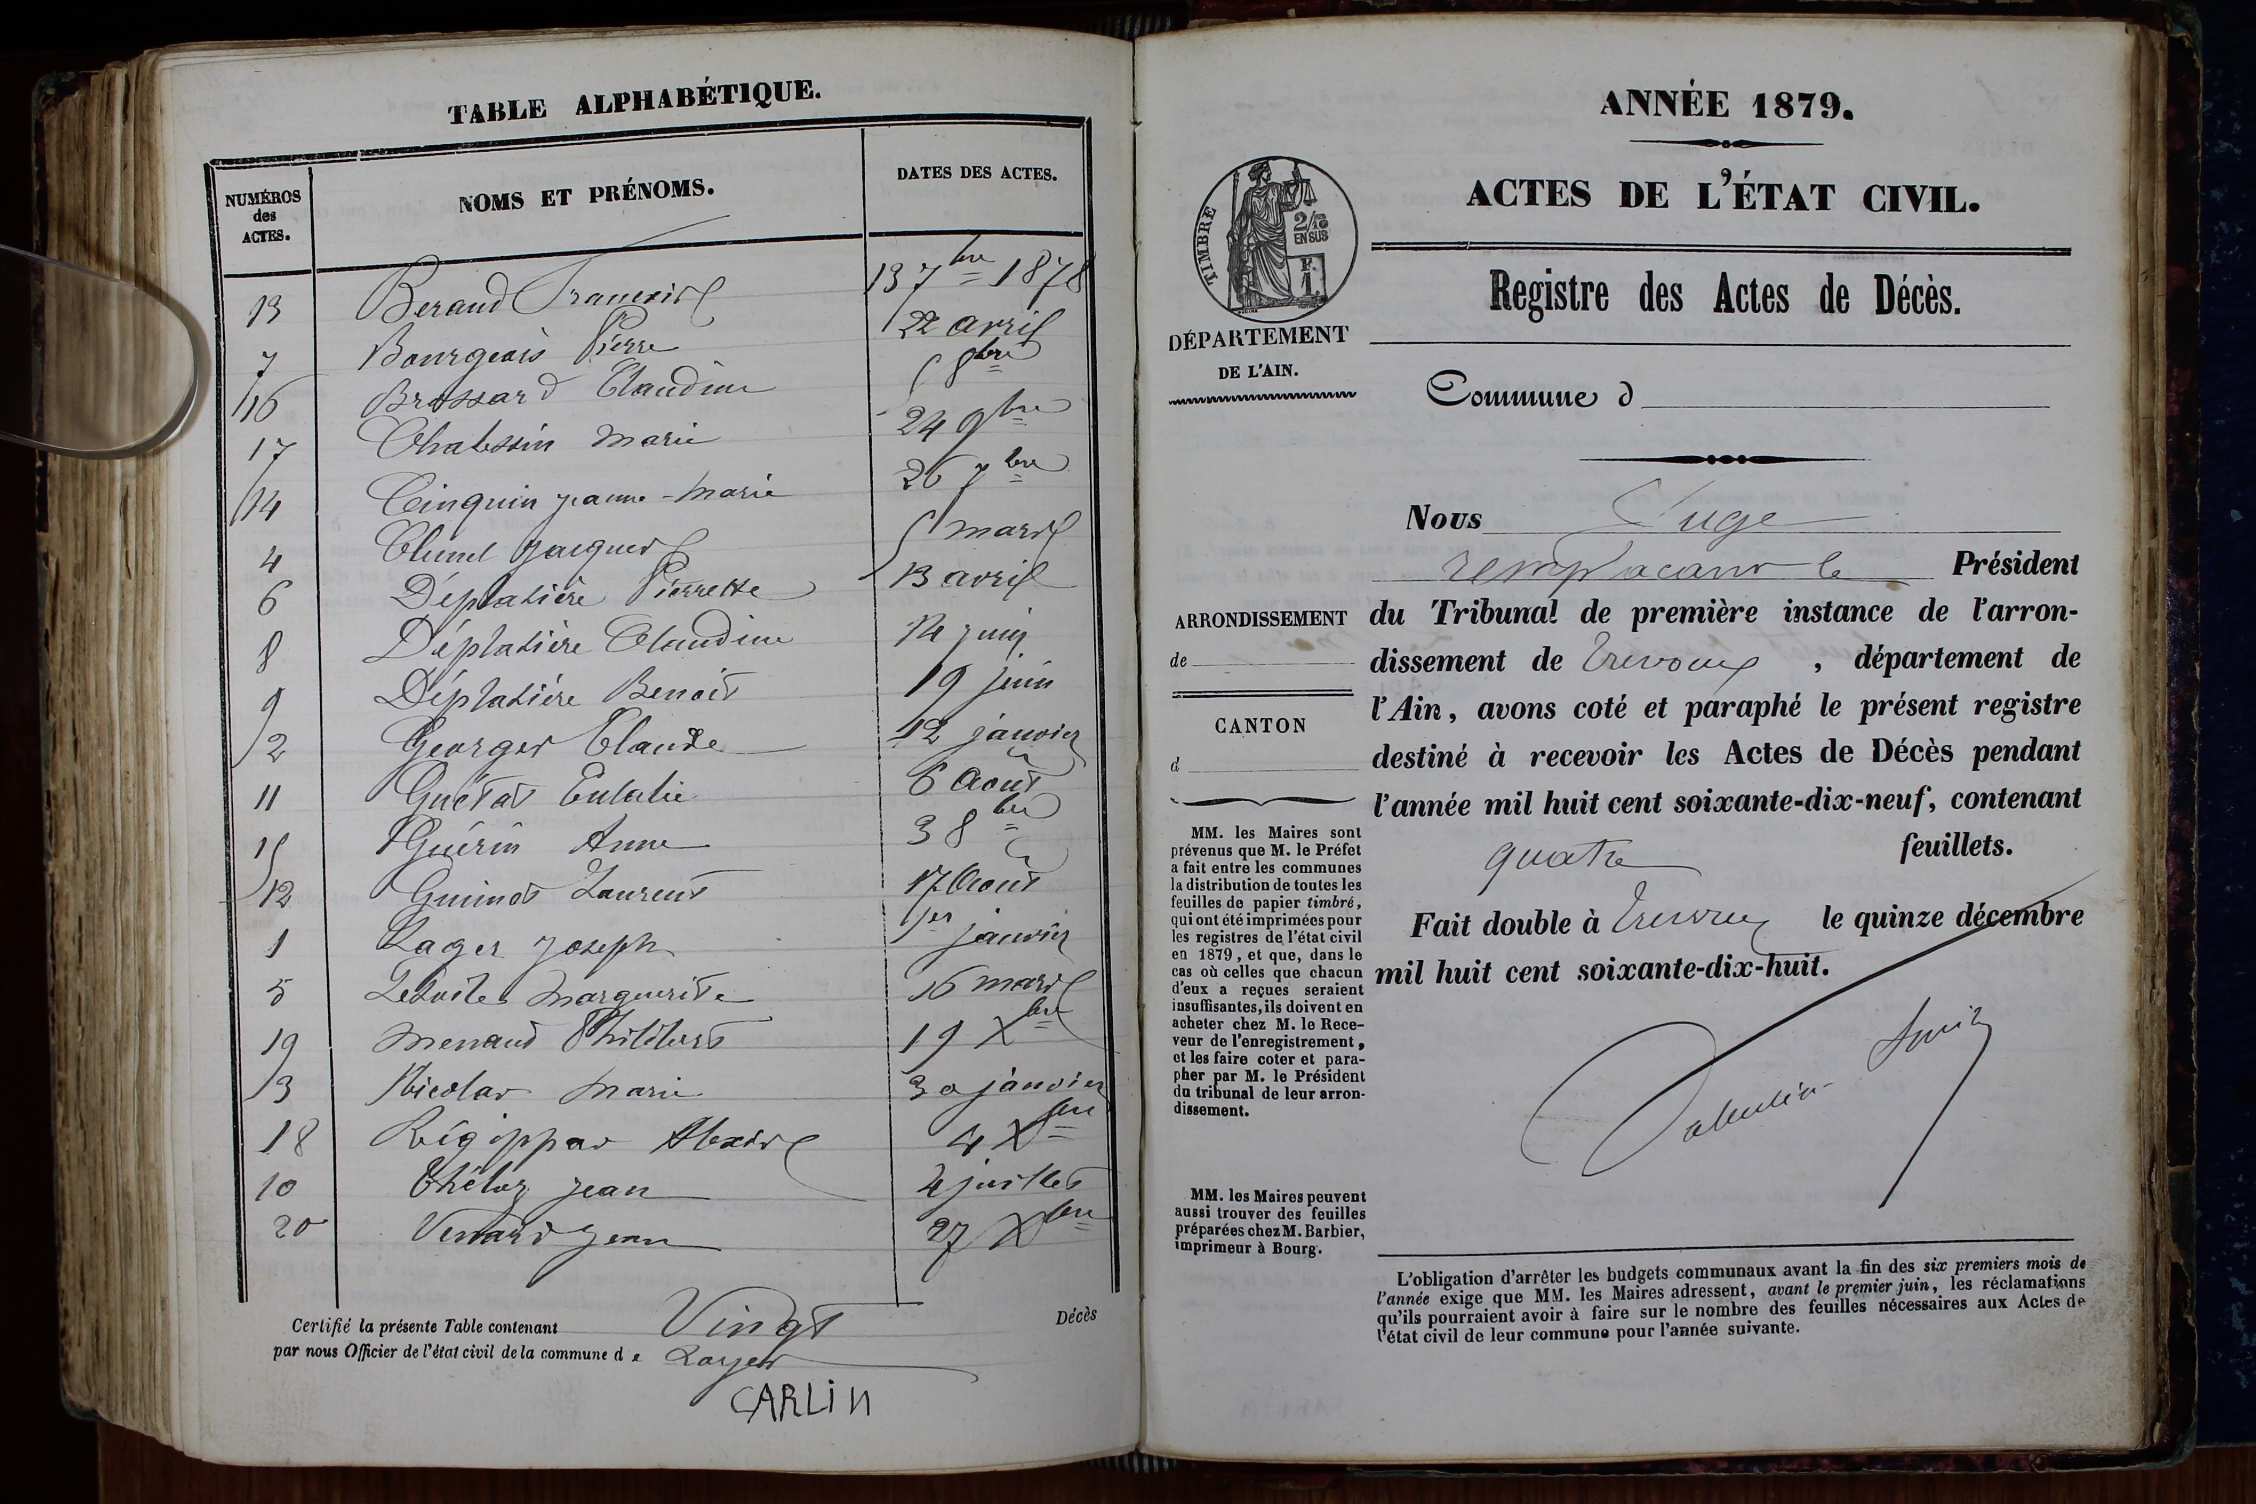 TABLE ALPHABÉTIQUE.
NUMÉROS des ACTES. NOMS ET PRÉNOMS. DATES DES ACTES.
13 Beraud François 13 7bre 1878
7 Bourgeois Pierre 22 avril
16 Brossard Claudine 5 8bre
17 Chabessin Marie 24 9bre
14 Cinquin Jeanne-Marie 26 7bre
4 Jacques 5 mars
6 Déplatière Pierrette 13 avril
8 Déplatière Claudine 14 juin
9 Déplatière Benoit 19 juin
2 Georges Claude 12 janvier
11 Guétat Eulalie 6 Aout
15 Guérin Anne 3 8bre
12 Guinot Laurent 17 Aout
1 Lager Joseph 1er janvier
5 Marguerite 16 mars
19 Menand Philibert 19 Xbre
3 Nicolas Marie 30 janvier
18 Régippas Alexis 4 Xbre
10 Jean 4 juillet
20 Venard Jean 27 Xbre
Certifié la présente Table contenant Vingt Décès
par nous Officier de l'état civil de la commune d e Loyes
CARLIN
ANNÉE 1879.
ACTES DE L'ÉTAT CIVIL.
TIMBRE
2/10
EN SUS
F.
1.
Registre des Actes de Décès.
DÉPARTEMENT
DE L'AIN.
Commune d
Nous Juge
remplacant le Président
du Tribunal de première instance de l'arron-
dissement de Trevoux, département de
l'Ain, avons coté et paraphé le présent registre
destiné à recevoir les Actes de Décès pendant
l'année mil huit cent soixante-dix-neuf, contenant
quatre feuillets.
Fait double à Trevoux le quinze décembre
mil huit cent soixante-dix-huit.
Valentin Smith
ARRONDISSEMENT
de
CANTON
d
MM. les Maires sont
prévenus que M. le Préfet
a fait entre les communes
la distribution de toutes les
feuilles de papier timbré,
qui ont été imprimées pour
les registres de l'état civil
en 1879, et que, dans le
cas où celles que chacun
d'eux a reçues seraient
insuffisantes, ils doivent en
acheter chez M. le Rece-
veur de l'enregistrement,
et les faire coter et para-
pher par M. le Président
du tribunal de leur arron-
dissement.
MM. les Maires peuvent
aussi trouver des feuilles
préparées chez M. Barbier,
imprimeur à Bourg.
L'obligation d'arrêter les budgets communaux avant la fin des six premiers mois de
l'année exige que MM. les Maires adressent, avant le premier juin, les réclamations
qu'ils pourraient avoir à faire sur le nombre des feuilles nécessaires aux Actes de
l'état civil de leur commune pour l'année suivante.